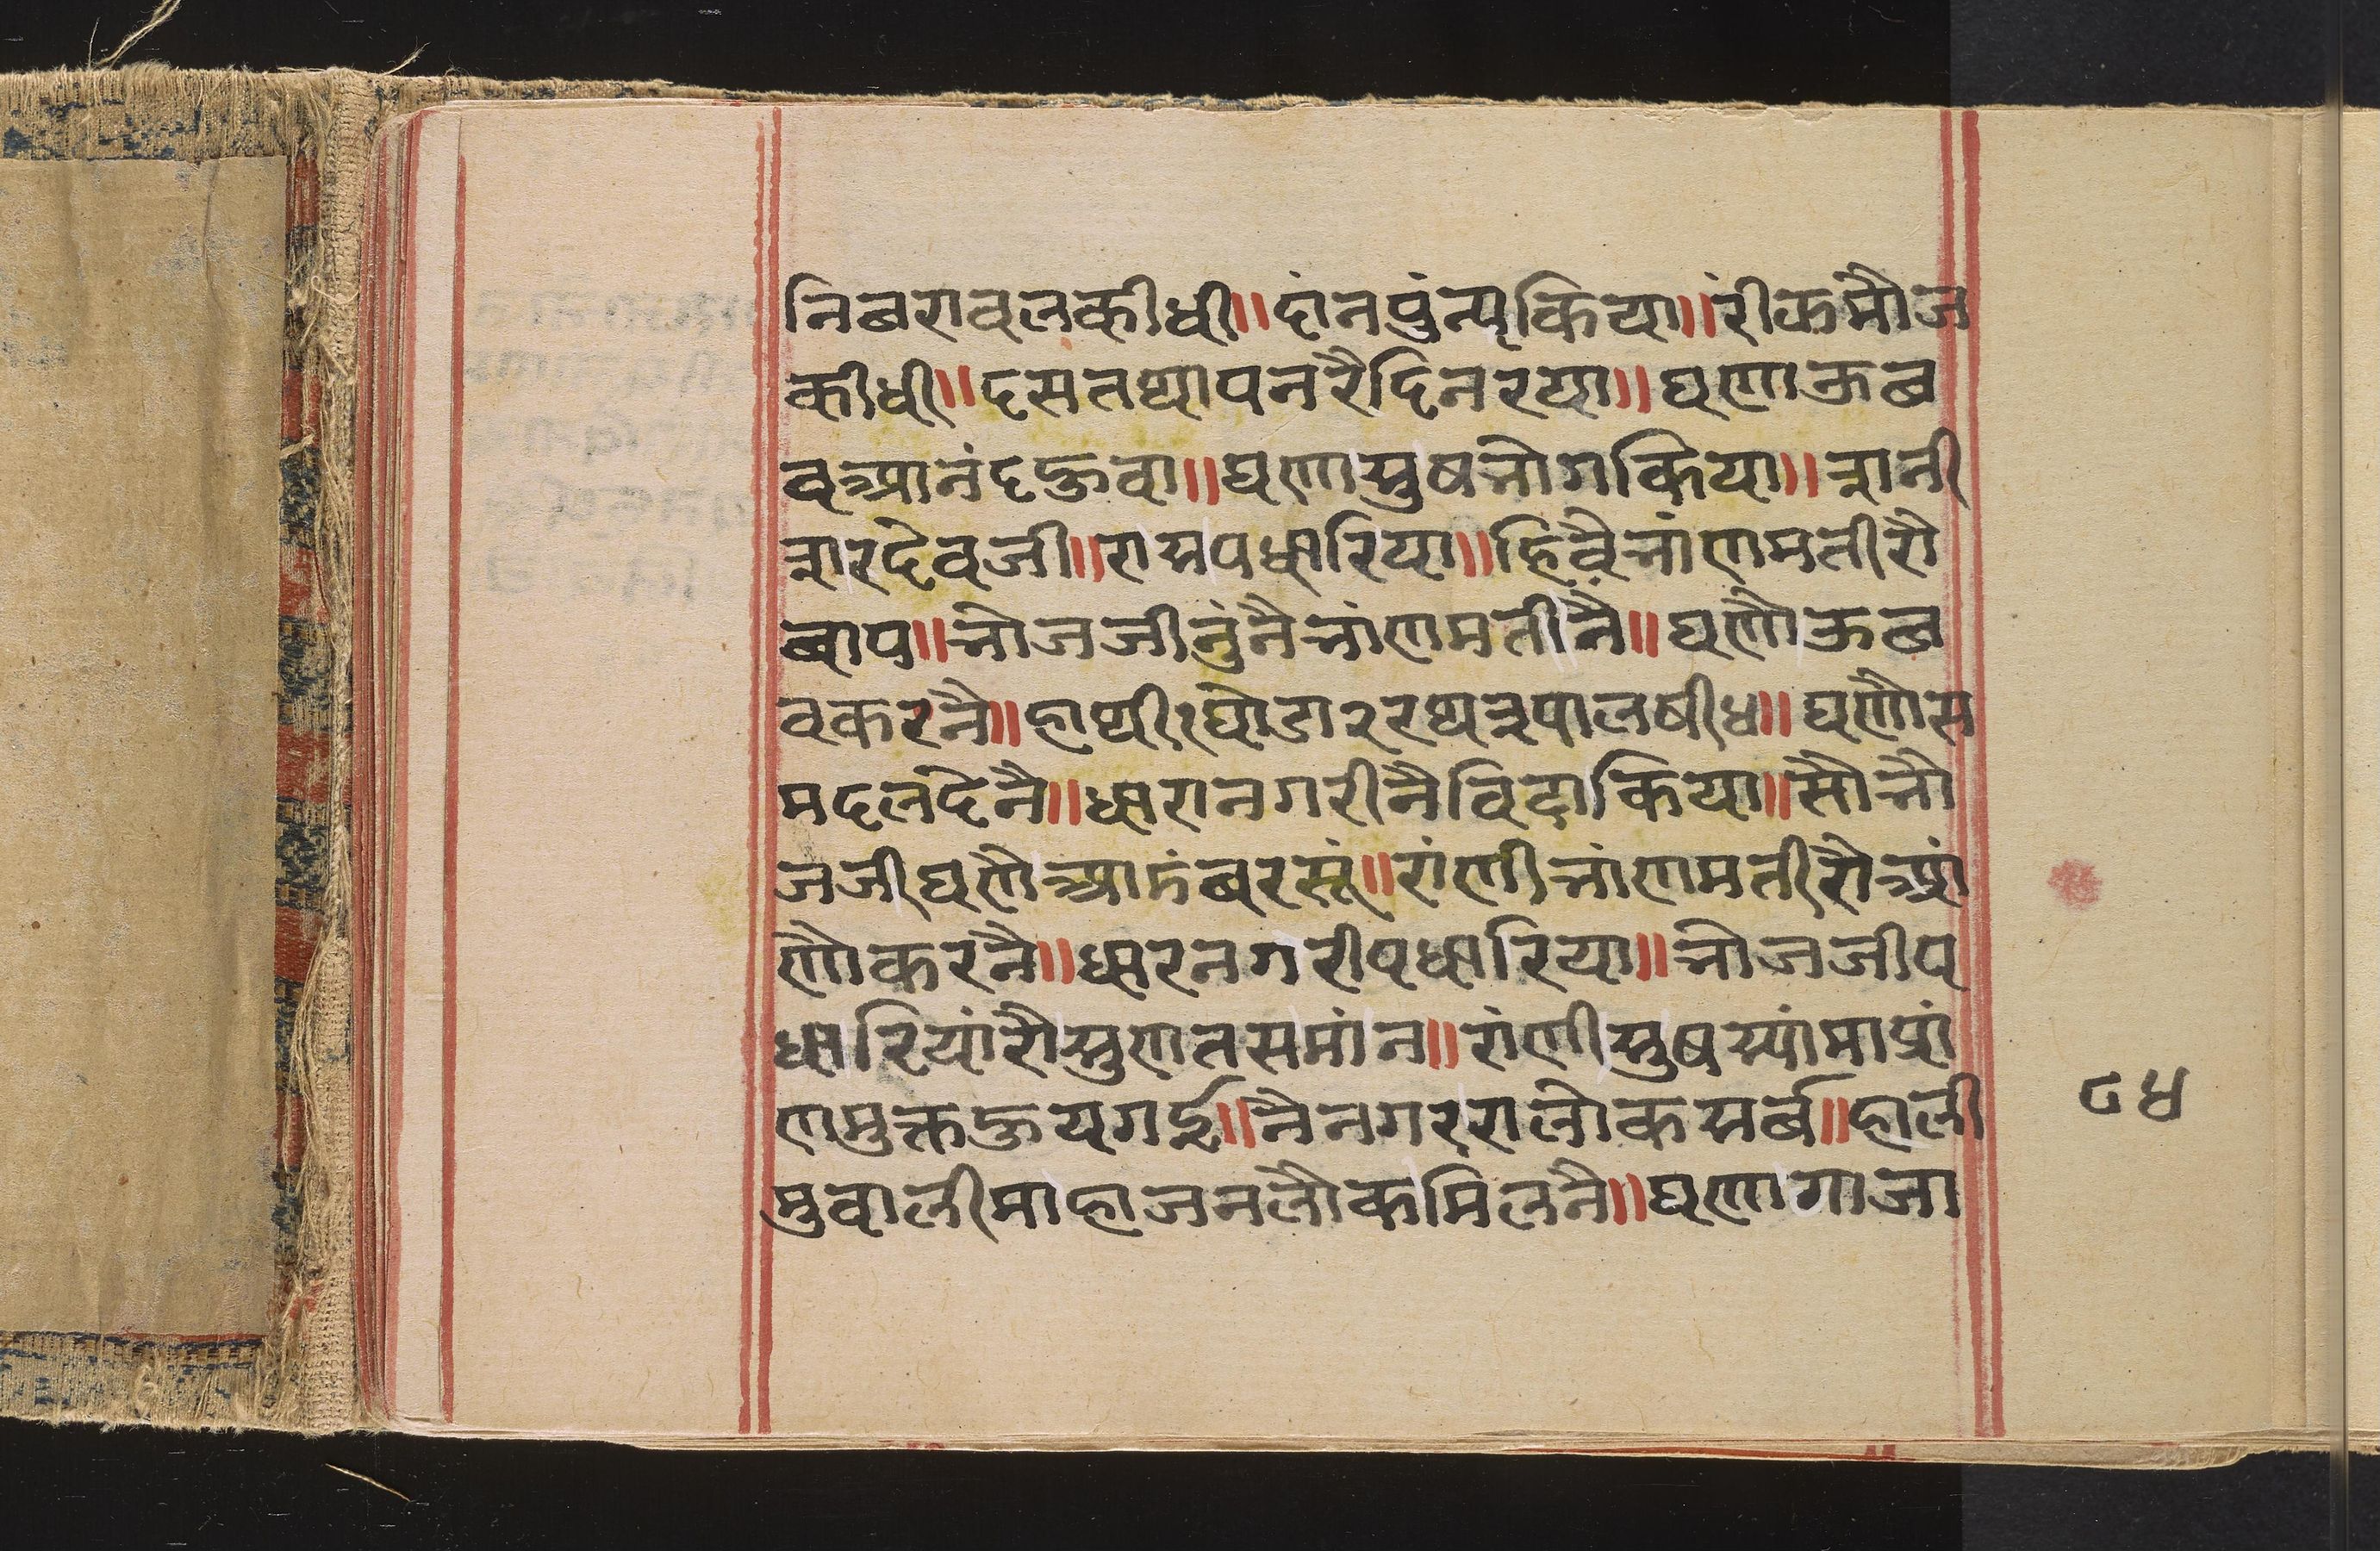 निबरावलकीधी॥दांनपुंन्यकिया॥रीकमौज
कीधी॥दसतथापनरैदिनरया॥घणाऊब
वआनंदहुवा॥घणासुषभोगकिया॥भानी
भारदेवजी॥रायपधारिया॥हिवैभांणमतीरो
बाप॥भोजजीनुंनैभांणमतीनै॥घणौऊब
वकरनै॥हाथीःघोडा२रथभ्रपालषीध॥घणौस
मदलदेनै॥धारानगरीनैविदाकिया॥सौभो
जजीघणैआडंबरसूं॥रांणीभांणमतीरोआं
णौकरनै॥धारनगरीपधारिया॥भोजजीप
धारियांरौसुणतसमांन॥रांणीसुषय्यांमाप्रां
णमुक्तहुयगई॥नैनगररालोकसर्ब॥हाली
मुवालीमाहाजनलौकमिलनै॥घणागाजा
८४